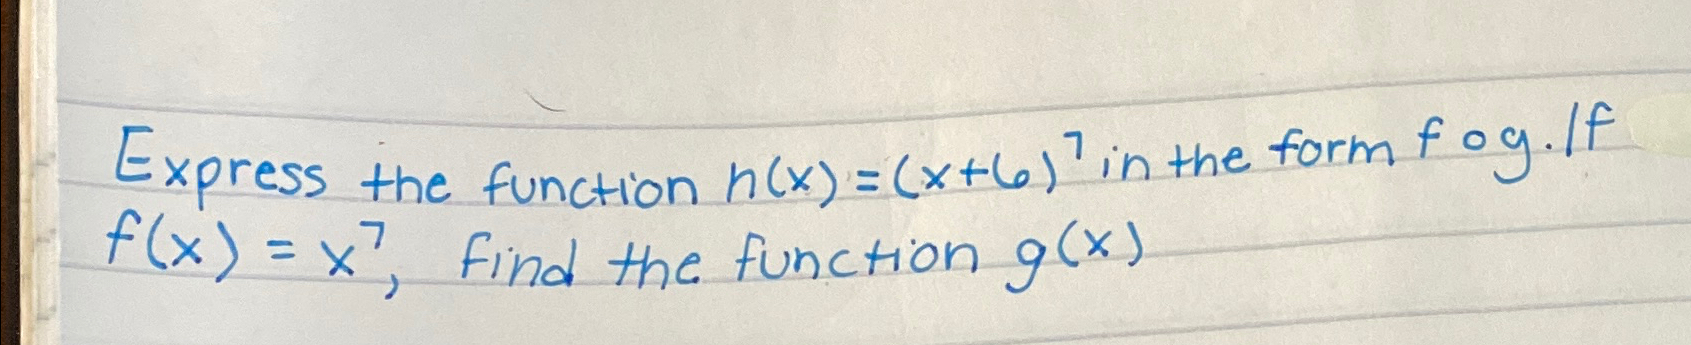 Express the function h(x) = (x+6)⁷ in the form f o g. If
f(x) = x⁷, find the function g(x)